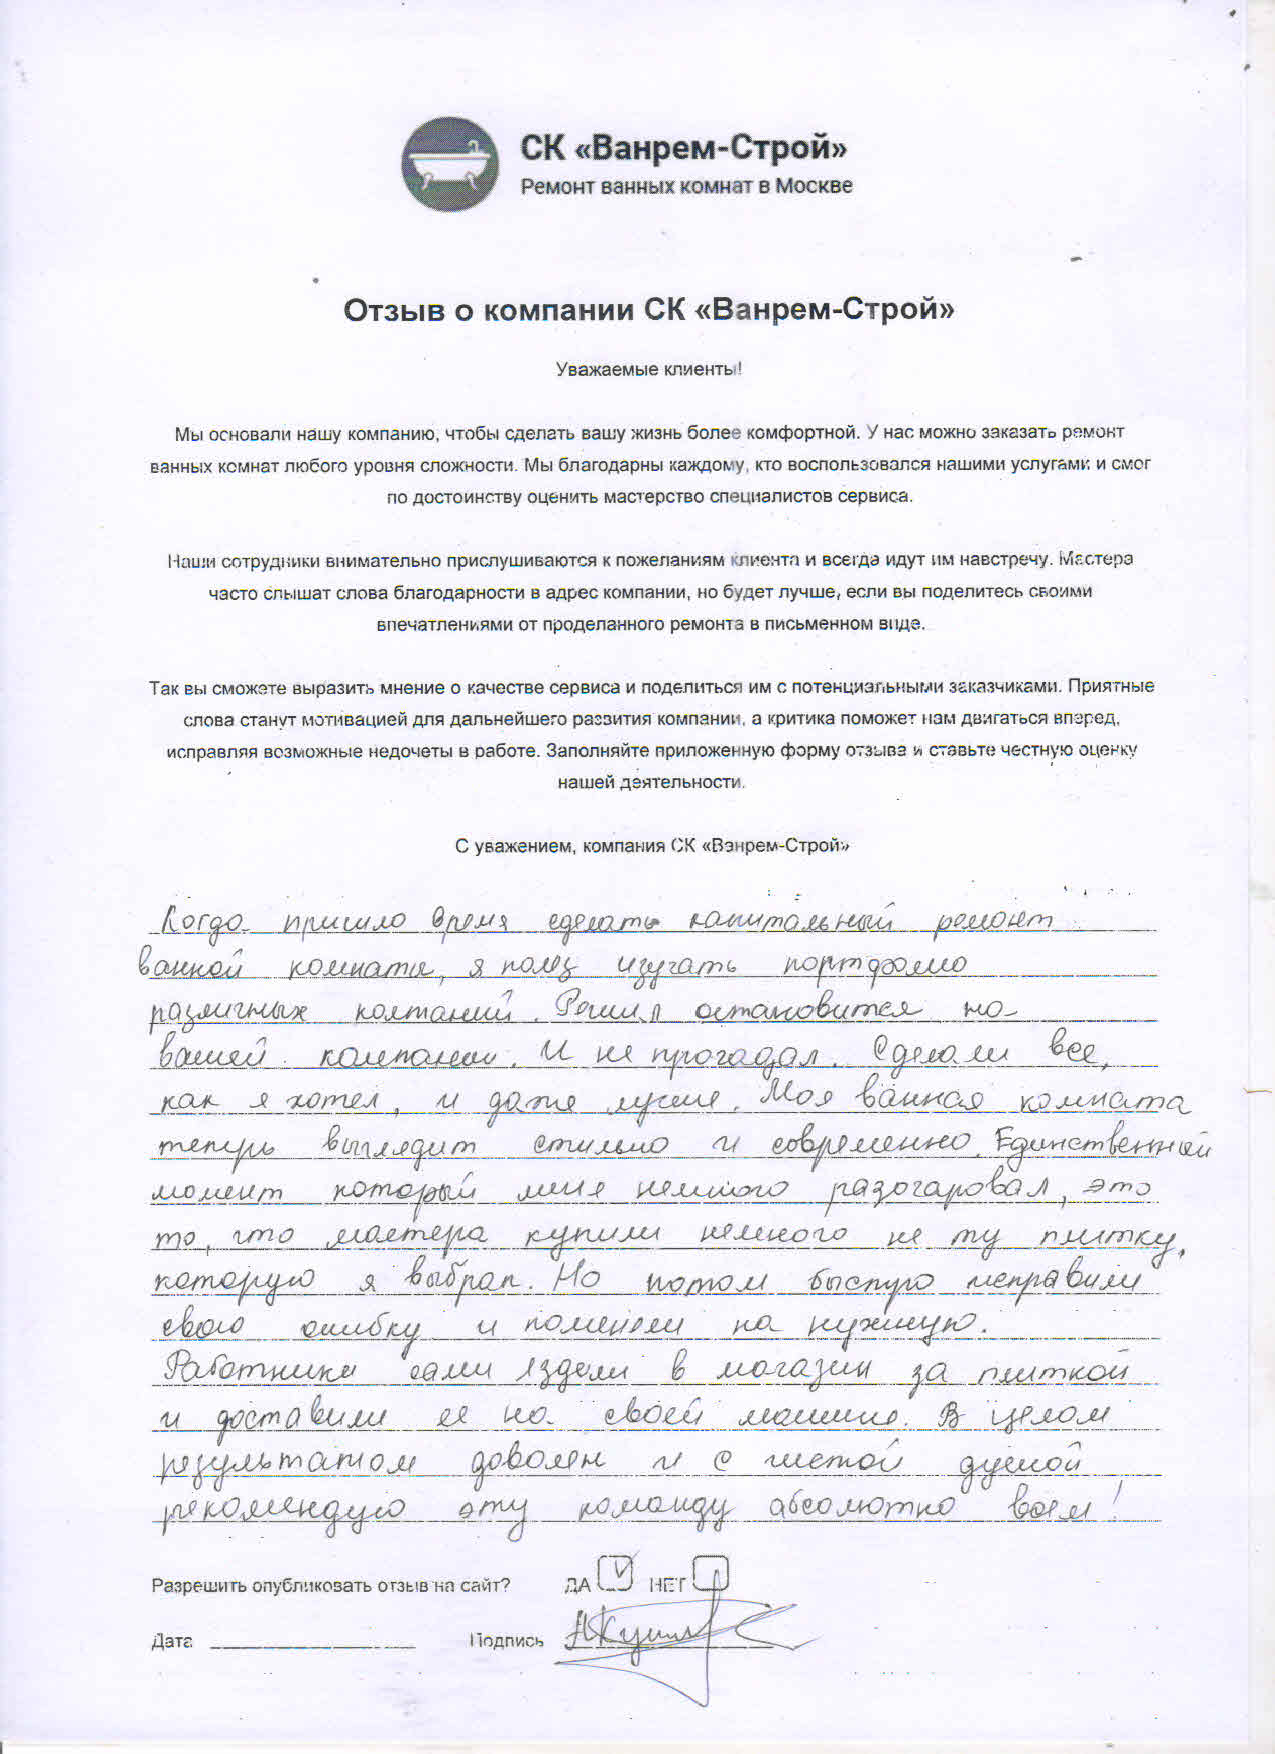 СК «Ванрем-Строй»
Ремонт ванных комнат в Москве
Отзыв о компании СК «Ванрем-Строй»
Уважаемые клиенты!
Мы основали нашу компанию, чтобы сделать вашу жизнь более комфортной. У нас можно заказать ремонт
ванных комнат любого уровня сложности. Мы благодарны каждому, кто воспользовался нашими услугами и смог
по достоинству оценить мастерство специалистов сервиса.
Наши сотрудники внимательно прислушиваются к пожеланиям клиента и всегда идут им навстречу. Мастера
часто слышат слова благодарности в адрес компании, но будет лучше, если вы поделитесь своими
впечатлениями от проделанного ремонта в письменном виде.
Так вы сможете выразить мнение о качестве сервиса и поделиться им с потенциальными заказчиками. Приятные
слова станут мотивацией для дальнейшего развития компании, а критика поможет нам двигаться вперед,
исправляя возможные недочеты в работе. Заполняйте приложенную форму отзыва и ставьте честную оценку
нашей деятельности.
С уважением, компания СК «Ванрем-Строй»
Когда пришло время сделать капитальный ремонт
ванной комнаты, я полез изучать портфолио
различных компаний. Решил остановится на
вашей компании. И не прогадал. Сделали все,
как я хотел, и даже лучше. Моя ванная комната
теперь выглядит стильно и современно. Единственный
момент который меня немного разочаровал, это
то, что мастера купили немного не ту плитку,
которую я выбрал. Но потом быстро исправили
свою ошибку и поменяли на нужную.
Работники сами яздели в магазин за плиткой
и доставили ее на своей машине. В целом
результатом доволен и с чистой душой
рекомендую эту команду абсолютно всем!
Разрешить опубликовать отзыв на сайт? ДА НЕТ
Дата Подпись